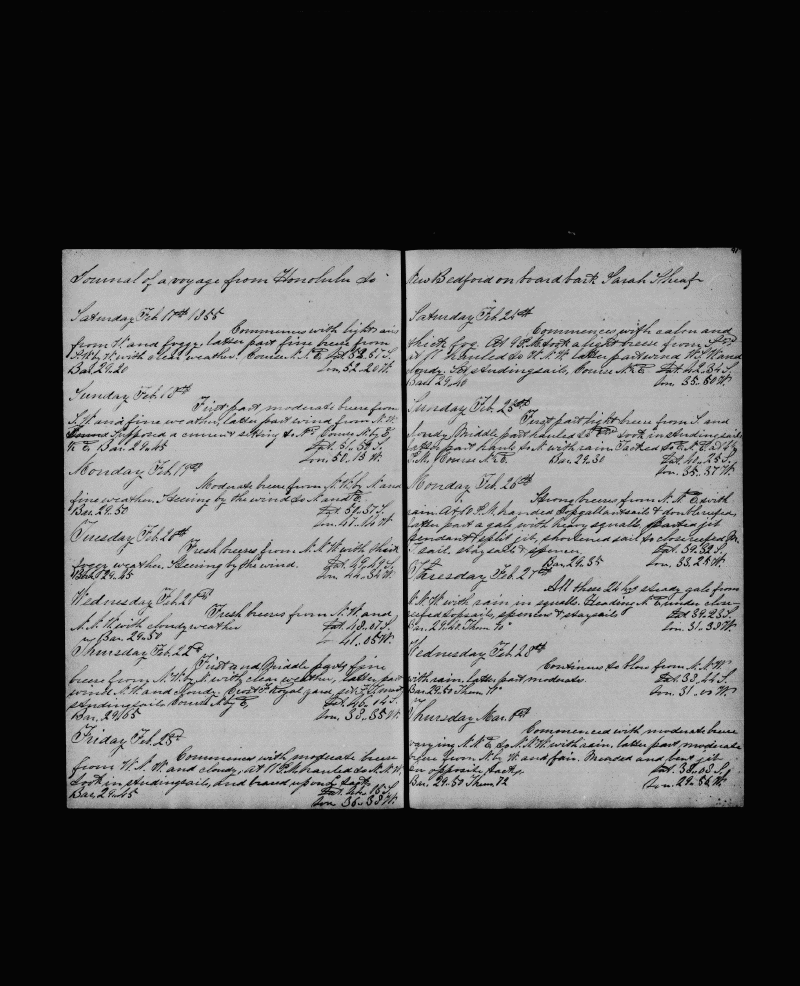 Journal of a voyage from Honolulu to
Saturday Feb 17th 1855
Commences with light airs
from W. and foggy latter part fine breeze from
N.W. by W. with clear weather. Course N.N.E. Lat 52..51 S.
Bar. 29.20 Lon. 52..20 W.
Sunday Feb. 18th
First part moderate breeze from
S.W. and fine weather, latter part wind from N.W.
Supposed a current setting to N. Course N. by E.
Bar. 29.45 Lat. 51..
Lon. 50..13 W.
Monday Feb. 19th
Moderate breeze from N.W. by N. and
fine weather. Steering by the wind to N. and E.
Bar. 29.50 Lat. 50..57 S.
Lon. 47..40 W.
Tuesday Feb. 20th
Fresh breezes from N.N.W. with thick
foggy weather. Steering by the wind. Lat. 49..49 S.
Bar. 29.45 Lon. 44..34 W.
Wednesday Feb. 21st
Fresh breezes from N.W. and
N.N.W. with cloudy weather Lat. 48..07 S.
Bar. 29.50 41..05 W.
Thursday Feb. 22d
First and Middle parts fine
breeze from N.W. by N. with clear weather, latter part
wind N.W. and cloudy.
studdingsails. Course N. by E. Lat. 46..04 S.
Bar. 29.65 Lon. 38..55 W.
Friday Feb. 23d
Commences with moderate breeze
from W.N.W. and cloudy, at hauled to N.N.W.
took in studdingsails, and braced up on tack
Bar. 29.45 Lat. 44..
Lon. 36..38 W.
41
New Bedford on board bark Sarah Sheaf
Saturday Feb. 24th
Commences with calm and
thick fog. At 9 P.M. took a light breeze from
at hauled to W.N.W. latter part wind W.S.W. and
cloudy. Set studdingsails. Course N.N.E. Lat 42..54 S.
Bar 29.40 Lon. 35..50 W.
Sunday Feb. 25th
First part light breeze from S. and
cloudy Middle part hauled to took in studdingsails
latter part hauled to N. with rain Tacked to E.N.E. at
P.M. Course N.N.E. Bar. 29.50 Lat. 41..25 S.
Lon. 35..37 W.
Monday Feb. 26th
Strong breezes from N.N.E. with
rain. At 10 P.M. handed topgallantsails & double reefed
latter part a gale with heavy squalls parted jib
pendant & split jib, shortened sail to close reefed M.
T sail, staysails & spencer. Lat. 39..52 S.
Bar. 29.35 Lon. 33..25 W.
Tuesday Feb. 27th
All these 24 hrs steady gale from
N.N.W. with rain in squalls. Heading N.E. under close
reefed topsails, spencers & staysails Lat 39..23 S.
Bar. 29.40 Them. 70° Lon. 31..38 W.
Wednesday Feb. 28th
Continues to blow from N.N.W.
with rain, latter part moderate. Lat. 38..44 S.
Bar. 29.50 Them. Lon. 31.. W.
Thursday Mar. 1st
Commenced with moderate breeze
varying N.N.E. to N.N.W. with rain, latter part moderate
breeze from N. by W. and fair. Mended and bent jib
on opposite tacks. Lat. 38..08 S.
Bar. 29.50 Them. 72 Lon. 29..56 W.